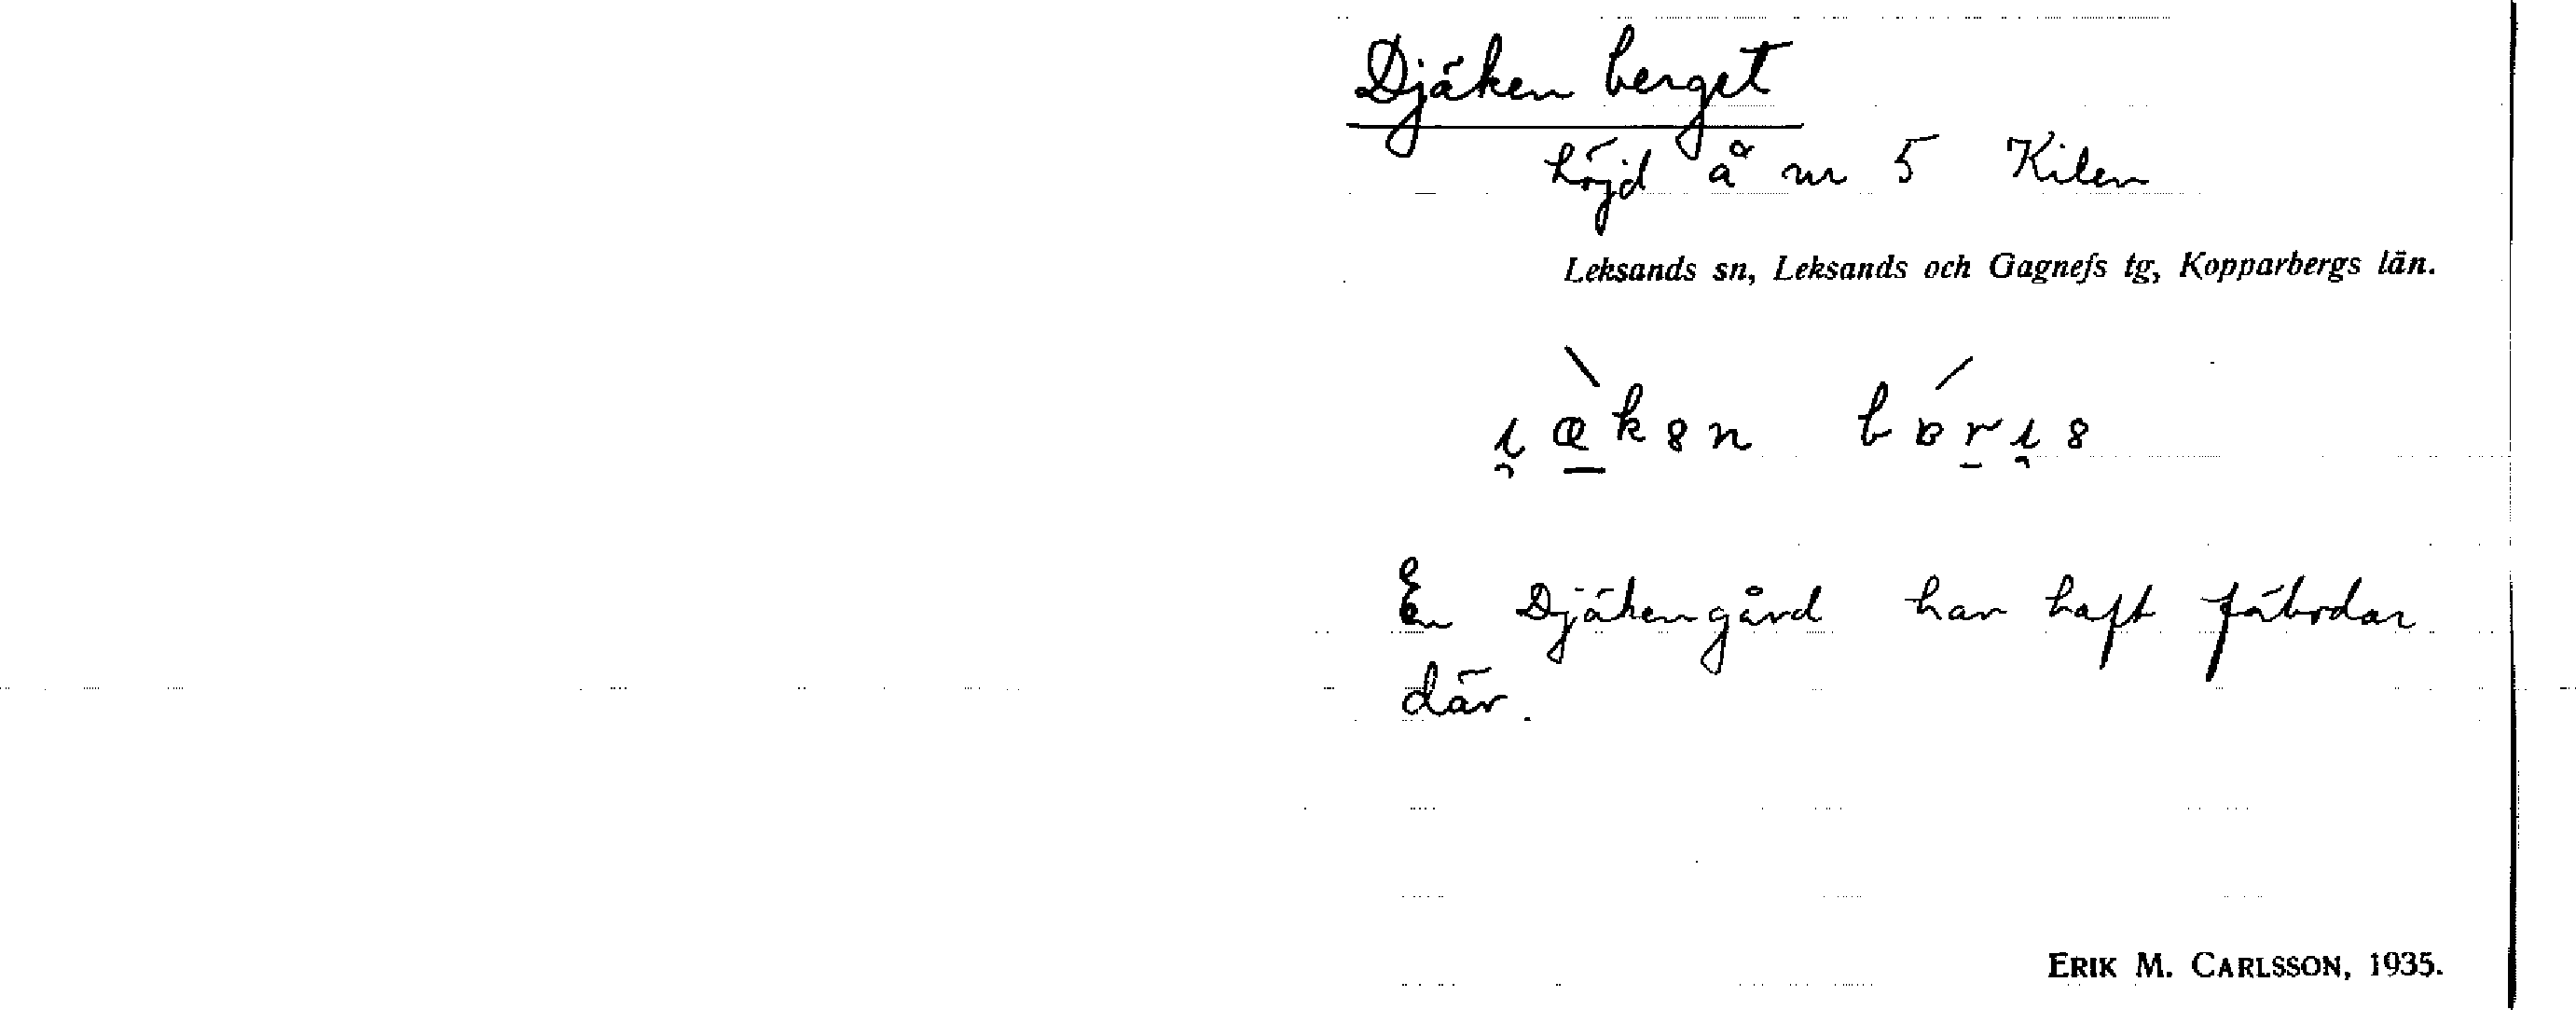 Djäken berget
höjd å nr 5 Kilen
Leksands sn, Leksands och Gagnefs tg, Kopparbergs län.
En Djäkengård har haft fäbodar
där.
ERIK M. CARLSSON, 1935.